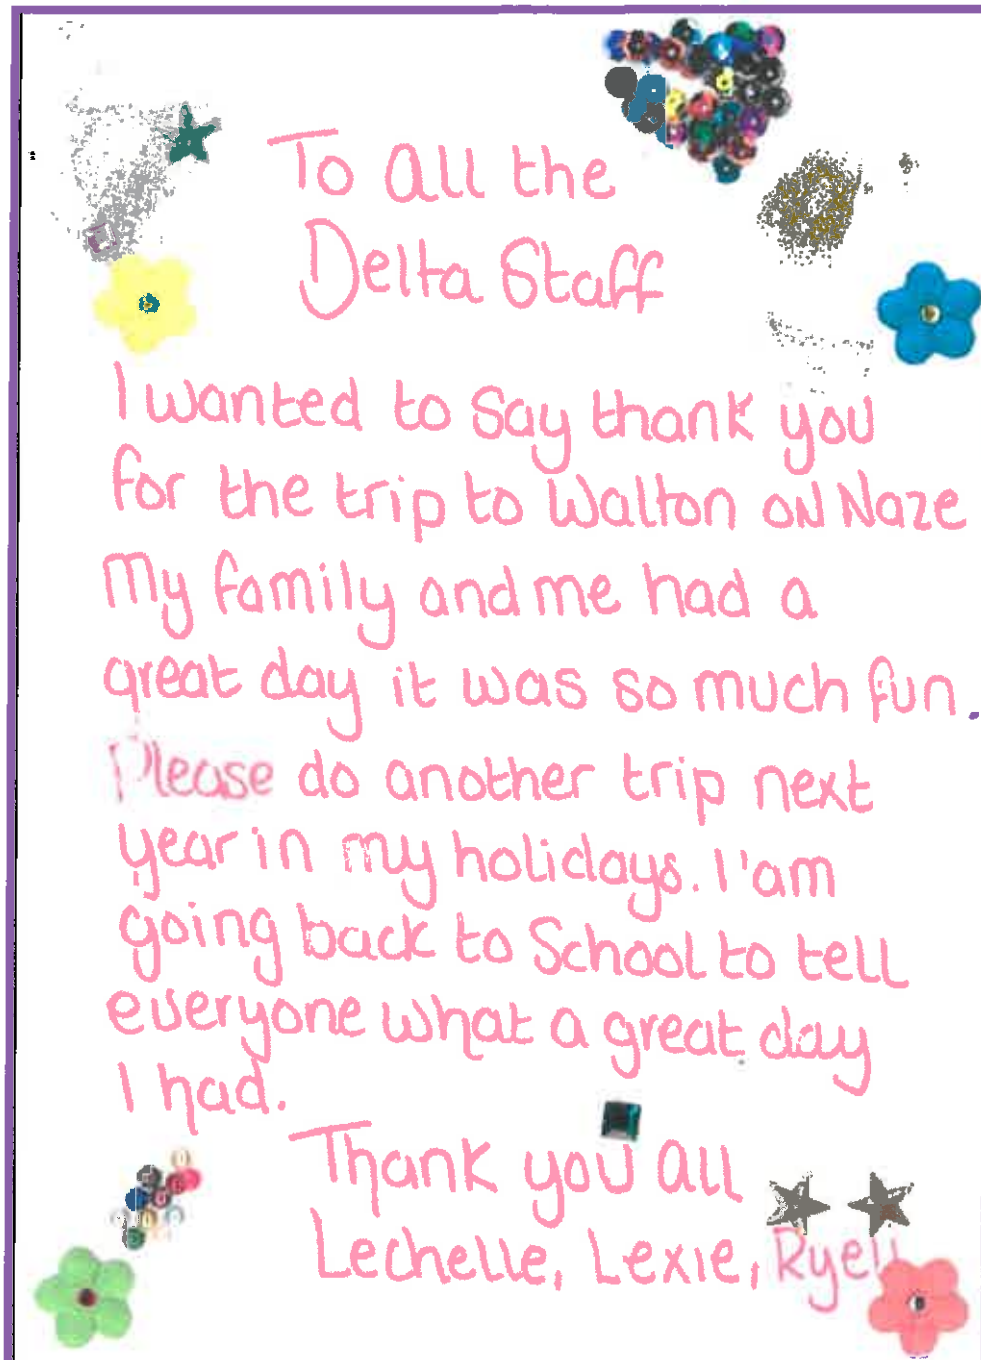 To all the
Delta Staff
I wanted to say thank you
for the trip to Walton oN Naze
My family and me had a
great day it was so much fun.
Please do another trip next
year in my holidays. I'am
going back to School to tell
everyone what a great day
I had.
Thank you all
Lechelle, Lexie,